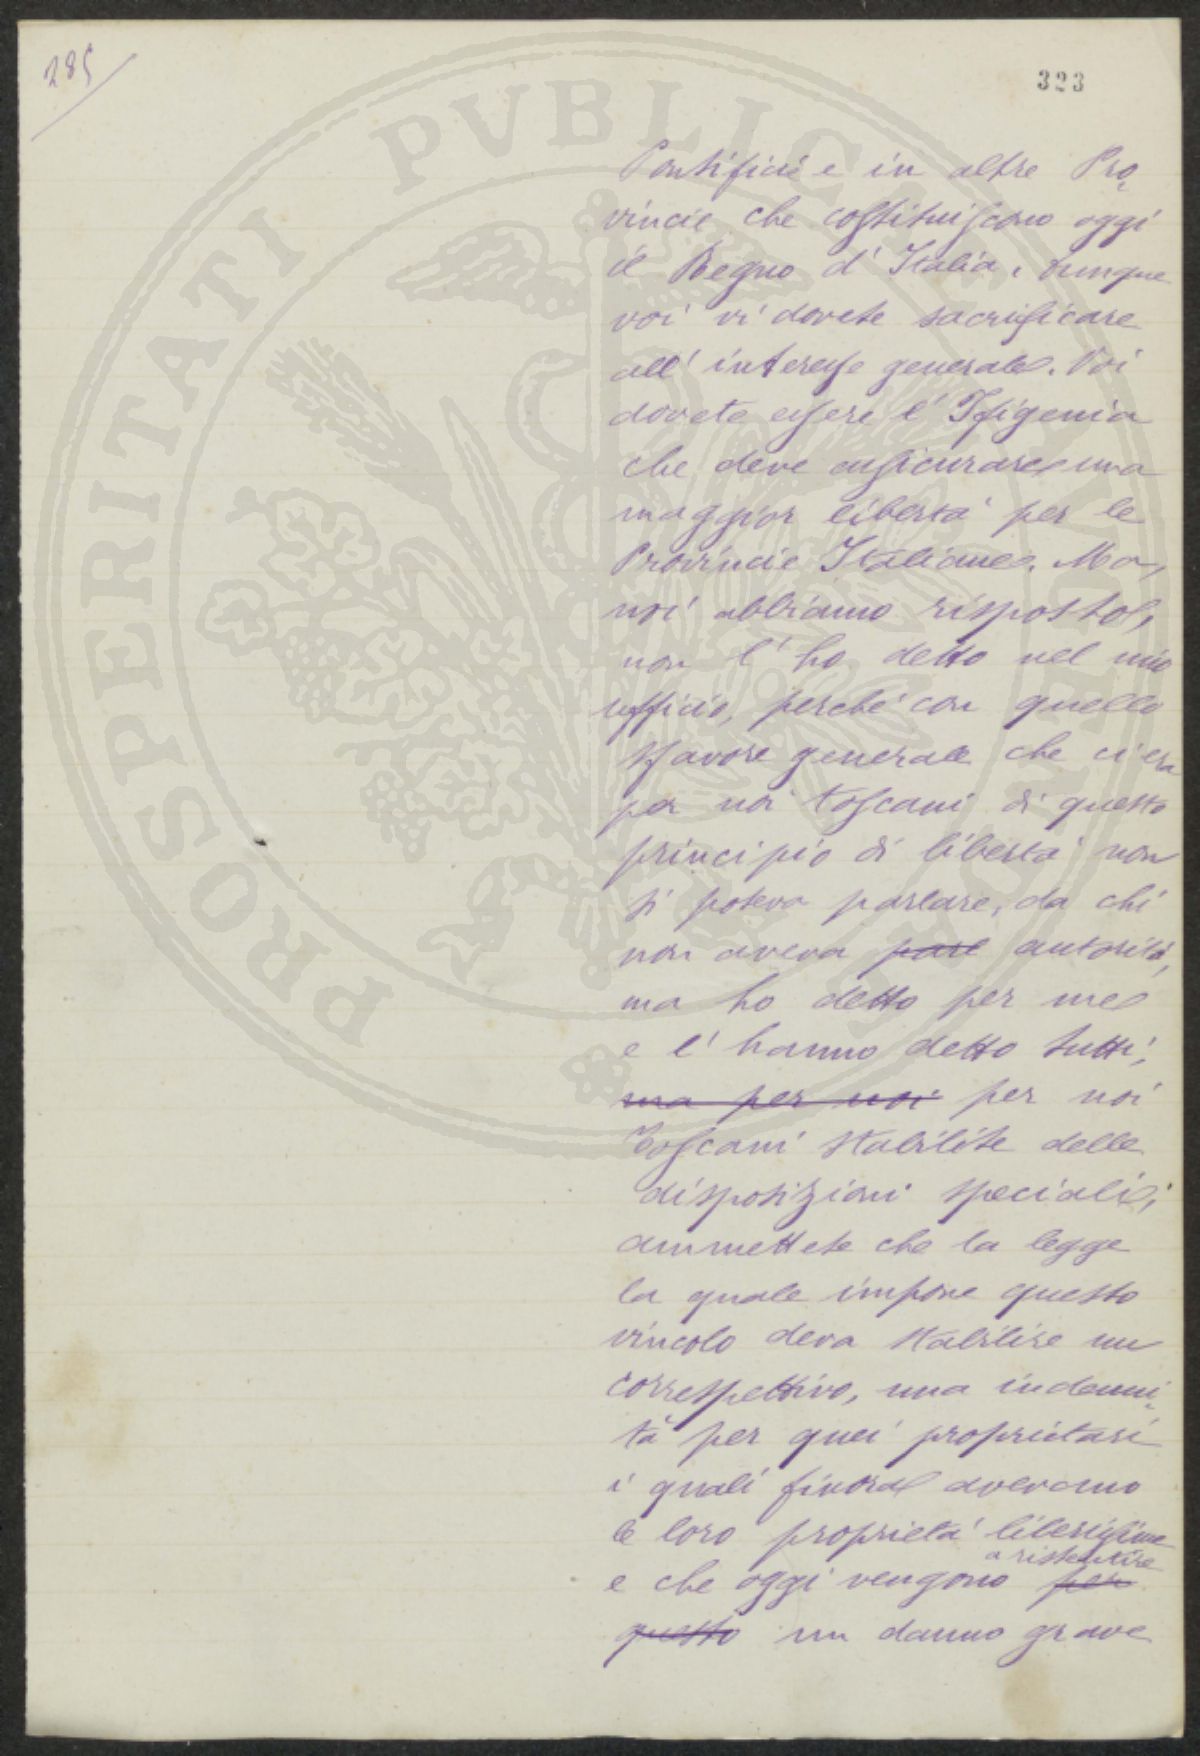 285
323
Pontificie e in altre Pro,
vincie che costituiscono oggi
il Regno d'Italia, dunque
voi vi dovete sacrificare
all'interesse generale. Voi
dovete essere l'Ifigenia
che deve assicurare una
maggior libertà per le
Provincie Italiane. Ma,
noi abbiamo risposto,
non l'ho detto nel mio
ufficio, perché con quello
sfavore generale che ci era
per noi toscani di questo
principio di libertà non
si poteva parlare, da chi
non aveva parl autorità,
ma ho detto per me
e l'hanno detto tutti,
ma per noi per noi
Toscani stabilite delle
disposizioni speciali;
ammettete che la legge
la quale impone questo
vincolo deva stabilire un
correspettivo, una indenni,
tà per quei proprietari
i quali finora avevano
le loro proprietà liberissime
a risentire
e che oggi vengono per
questo un danno grave
PROSPERITATI PVBLICAE